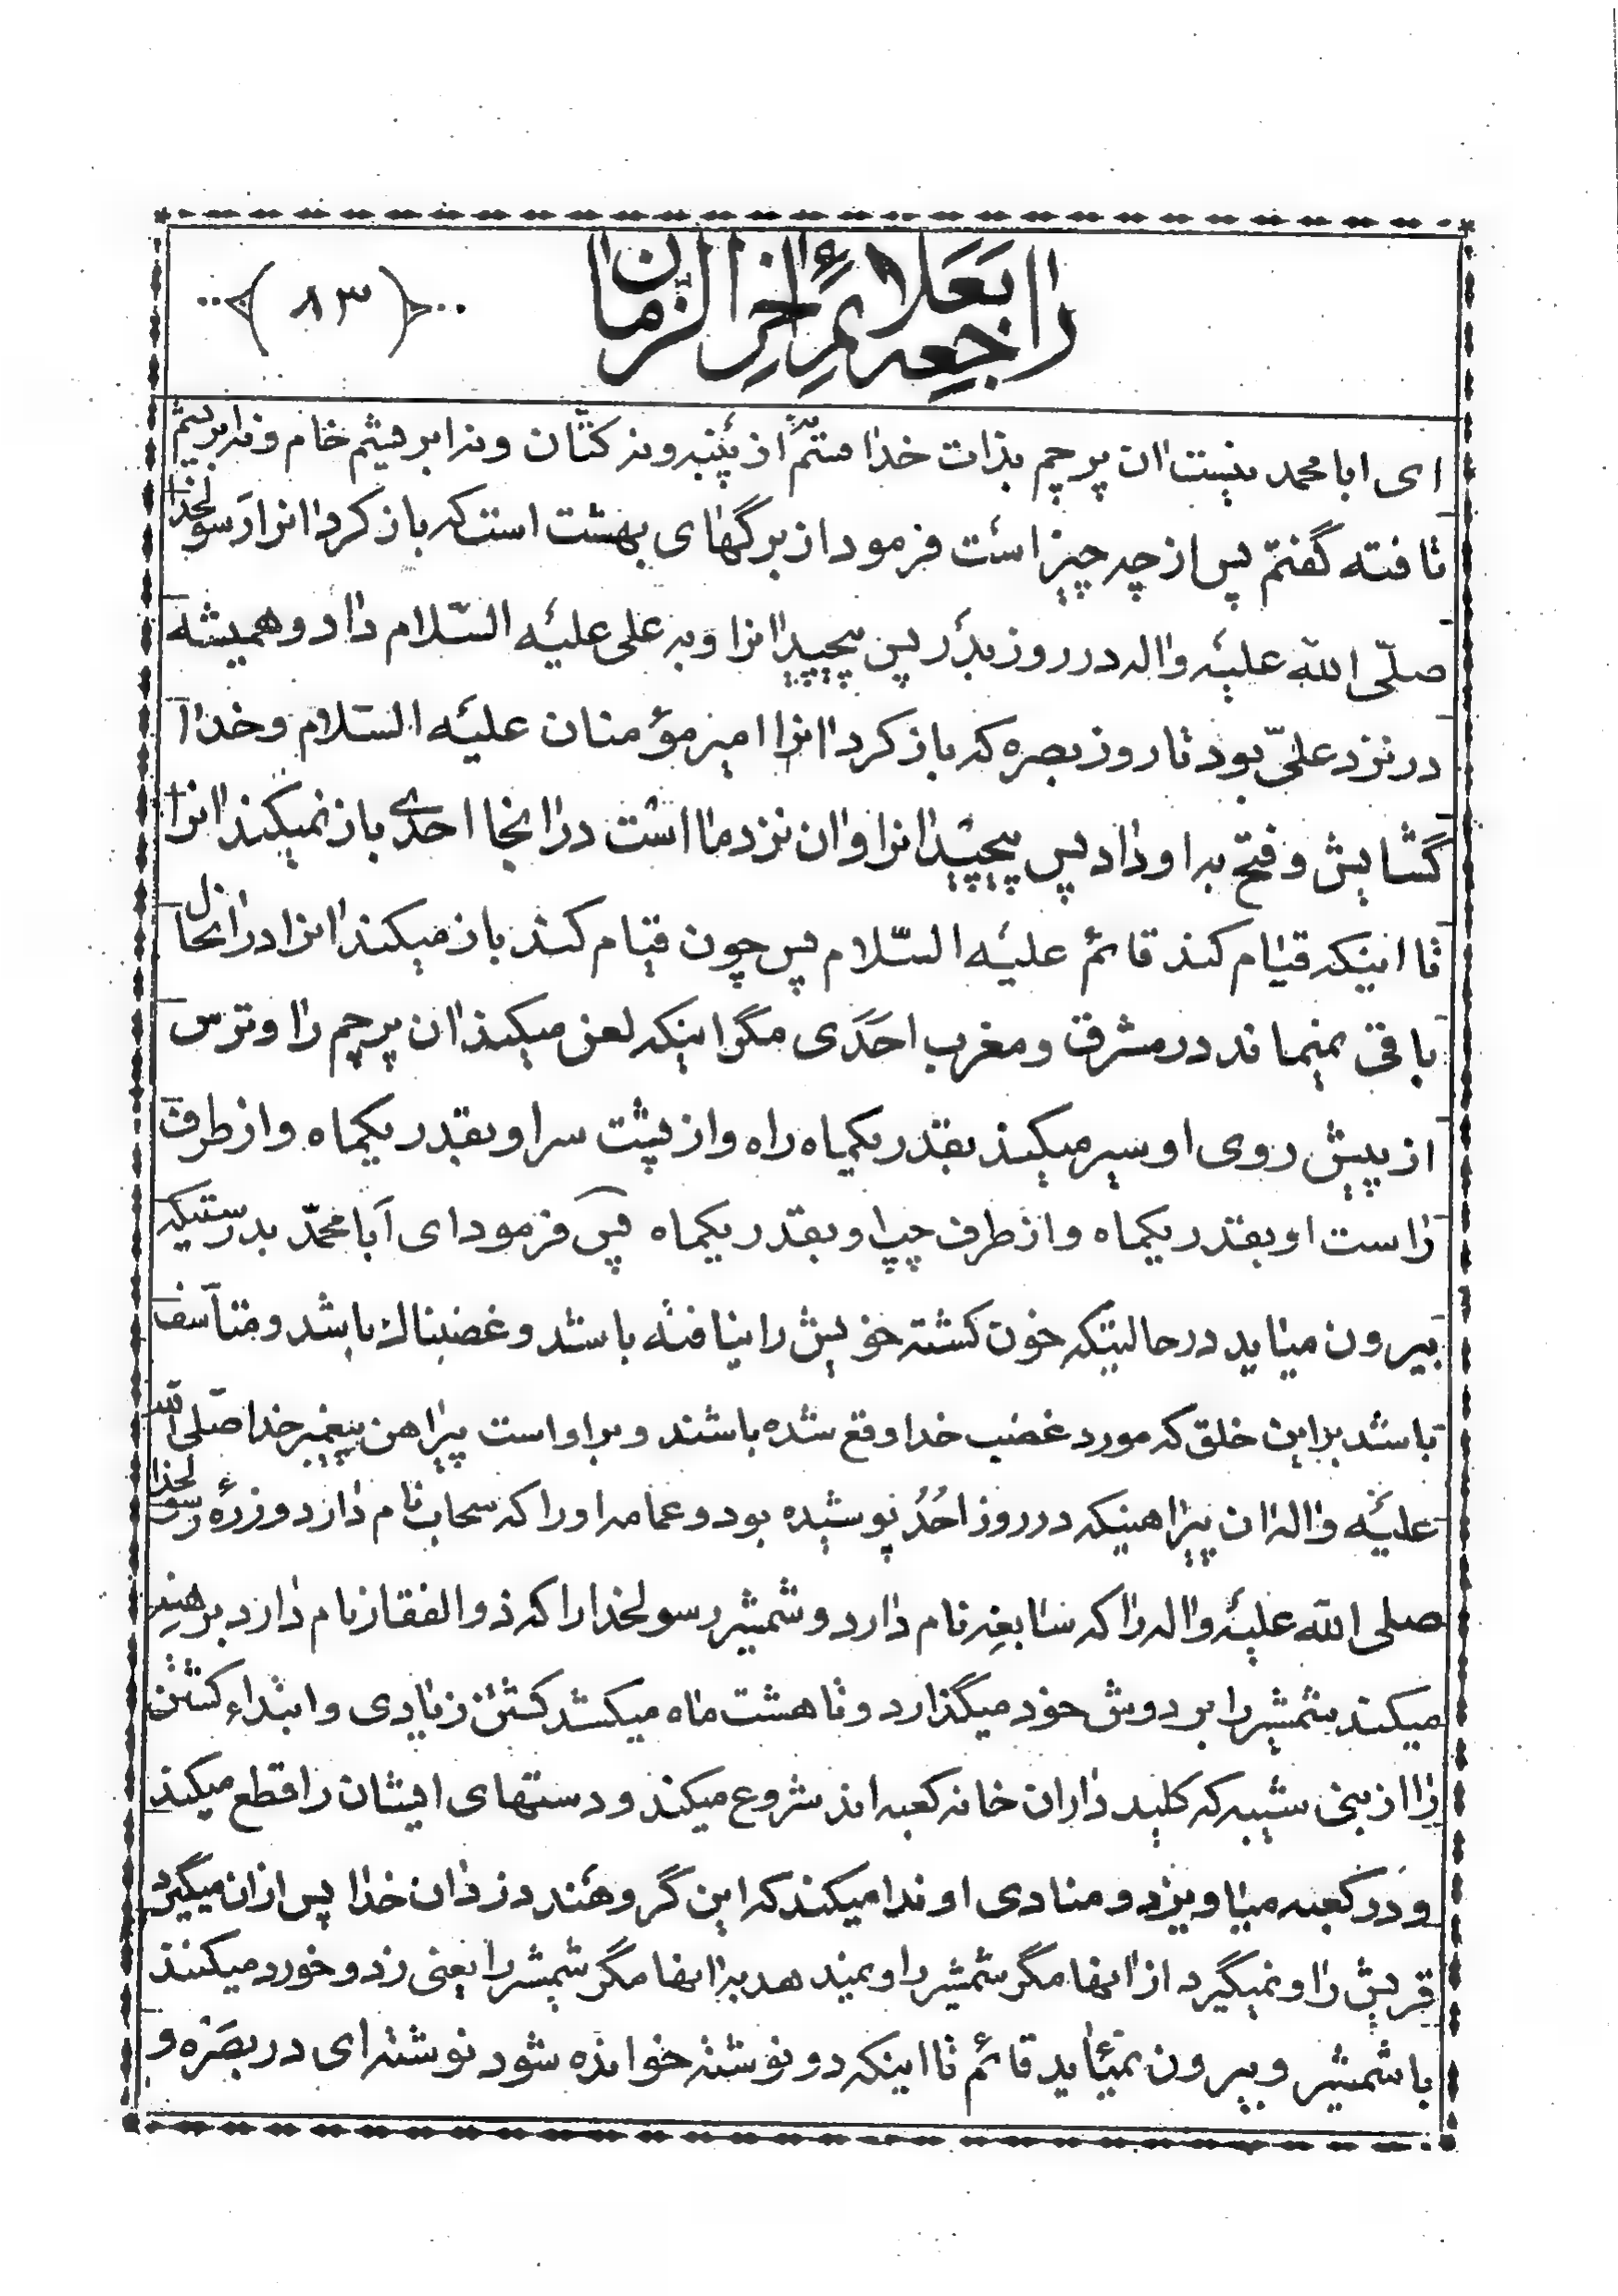 راجعه بعلائم اخرالزمان
(۸۳)
ای ابا محمد نیست ان پرچم بذات خدا قسم از پنبه و نه کتان و نه ابریشم خام و نه ابریشم
تافته گفتم پس از چه چیز است فرمود از برگهای بهشت است که باز کرد انرا رسولخدا
صلّی الله علیه واله در روز بدر پس پیچید انرا و به علی علیه السّلام داد و همیشه
در نزد علیّ بود تا روز بصره که باز کرد انرا امیر مؤمنان علیه السّلام و خدا
گشایش و فتح به او داد پس پیچید انرا و ان نزد ما است در انجا احدی باز نمیکند انرا
تا اینکه قیام کند قائم علیه السّلام پس چون قیام کند باز میکند انرا در انحال
باقی نمیماند در مشرق و مغرب احَدَی مگر اینکه لعن میکند ان پرچم را و ترس
از پیش روی او سیر میکند بقدر یکماه راه و از پشت سر او بقدر یکماه و از طرف
راست او بقدر یکماه و از طرف چپ او بقدر یکماه پس فرمود ای اَبا محمّد بدرستیکه
بیرون میاید در حالتیکه خون کشته خویش را نیافته باشد و غضبناک باشد و متأسف
باشد بر این خلق که مورد غضب خدا وقع شده باشند و بر او است پیراهن پیغمبر خدا صلّی الله
علیه واله ان پیراهنیکه در روز اُحُد پوشیده بود و عمامه او را که سحاب نام دارد و زرهٔ رسولخدا
صلی الله علیه واله را که سابغه نام دارد و شمشیر رسولخدا را که ذوالفقار نام دارد برهنه
میکند شمشیر را بر دوش خود میگذارد و تا هشت ماه میکشد کشتن زیادی و ابتداء کشتن
را از بنی شیبه که کلید داران خانه کعبه اند شروع میکند و دستهای ایشان را قطع میکند
و در کعبه میاویزد و منادی او ندا میکند که این گروهند دزدان خدا پس از ان میگیرد
قریش را و نمیگیرد از انها مگر شمشیر را و نمیدهد به انها مگر شمشیر را یعنی زد و خورد میکنند
با شمشیر و بیرون نمیاید قائم تا اینکه دو نوشته خوانده شود نوشته ای در بصَره و